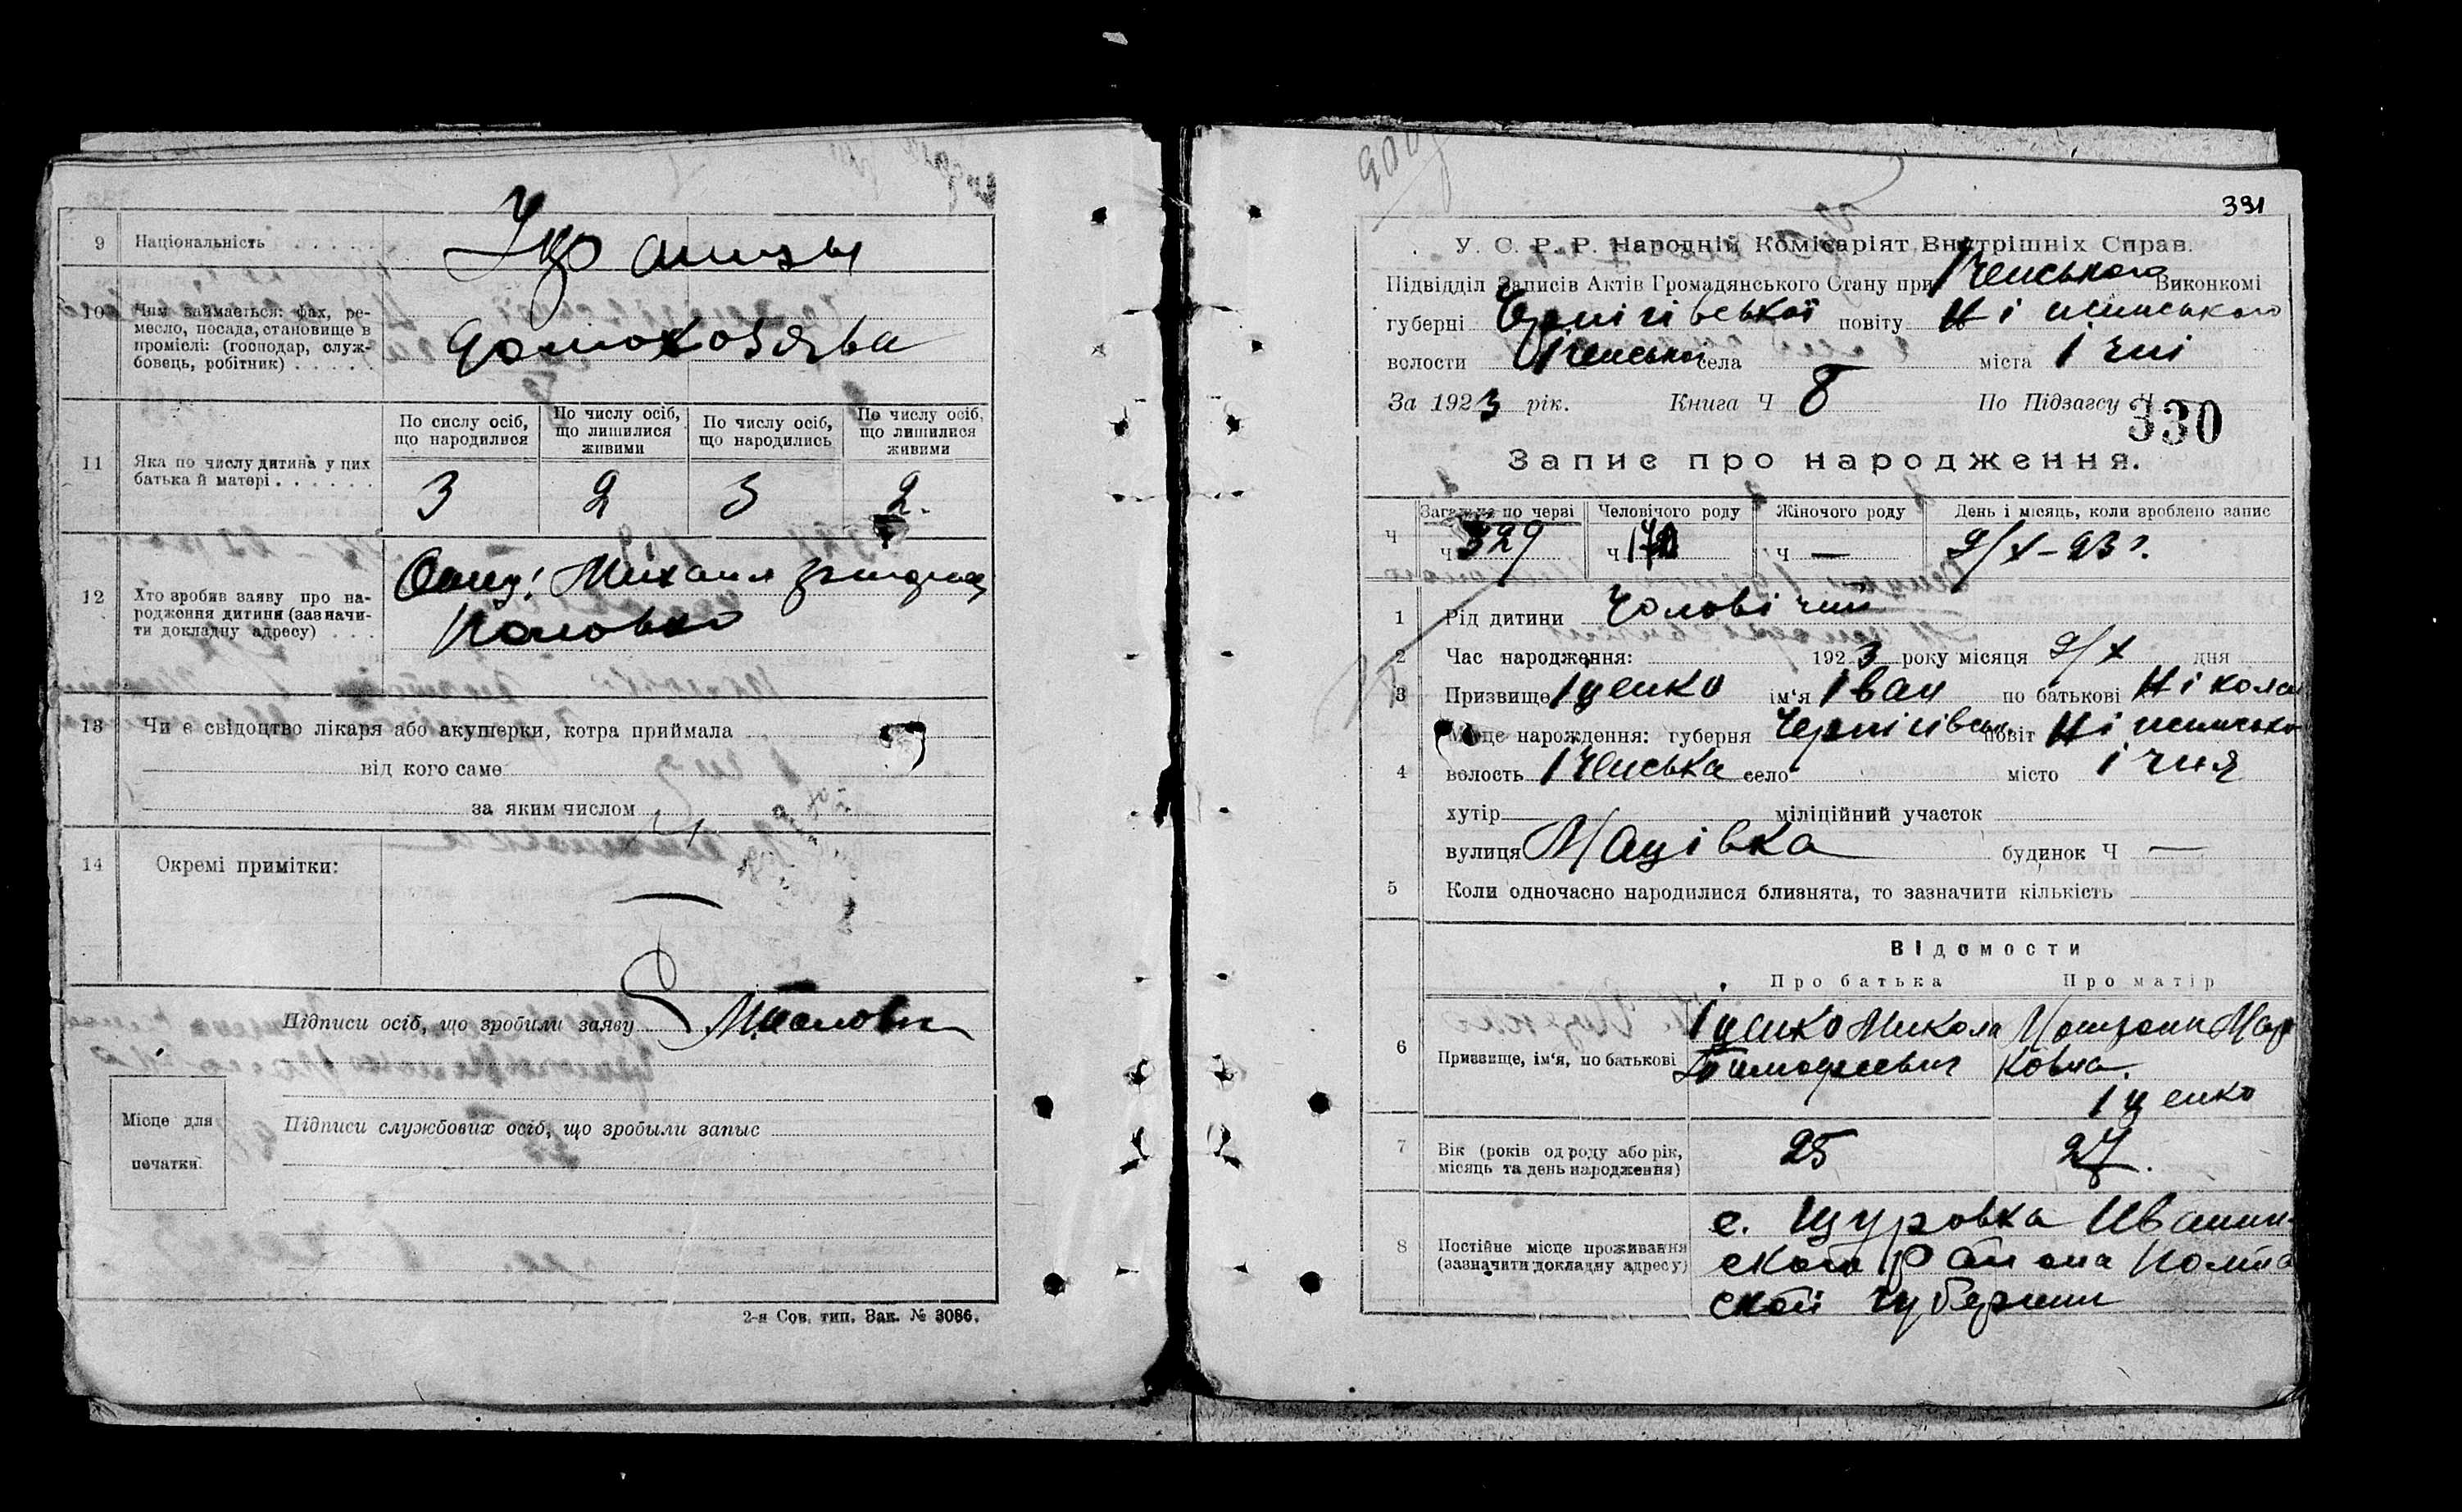 9 Національність Українці
10 Чим займається: фах, ре-
месло, посада, становище в
проміслі: (господар, служ-
бовець, робітник) домохозяева
По сислу осіб, що народилися
По числу осіб, що лишилися живими
По числу осіб, що народились
По числу осіб, що лишилися живими
11 Яка по числу дитина у цих
батька й матері
3 2 3 2.
12 Хто зробив заяву про на-
родження дитини (зазначи-
ти докладну адресу)
Отец: Михаил
13 Чи є свідоцтво лікаря або акушерки, котра приймала
від кого саме
за яким числом
14 Окремі примітки: —
Підписи осіб, що зробили заяву
Місце для
печатки.
Підписи службових осіб, що зробыли запыс
2-я Сов. тип. Зак. № 3086.
331
У. С. Р. Р. Народній Комісаріят Внутрішніх Справ.
Підвідділ Записів Актів Громадянського Стану при Іченського Виконкомі
губерні Чернігівської повіту Ніжинського
волости Іченської села міста Ічні
За 1923 рік. Книга Ч 8 По Підзагсу Ч 330
Запис про народження.
Загально по черзі Человічого роду Жіночого роду День і місяць, коли зроблено запис
Ч ч 329 ч ч — 9/X-23 г.
1 Рід дитини Чоловічий
2 Час народження: 1923 року місяця 9/X дня
3 Призвище Іценко ім'я Іван по батькові Нікола
4 Місце нарождення: губерня Чернігівськ. повіт Ніжинсько
волость Іченська село місто Ічня
хутір міліційний участок
вулиця Мацівка будинок Ч —
5 Коли одночасно народилися близнята, то зазначити кількість
Відомости
Про батька Про матір
6 Призвище, ім'я, по батькові
Іценко Микола
Тимофеевич
Мар
ковна.
Іценко
7 Вік (років од роду або рік,
місяць та день народження) 25 27.
8 Постійне місце проживання
(зазначити докладну адресу)
с. Щуровка Иваниц-
ского района Полта
ской губернии